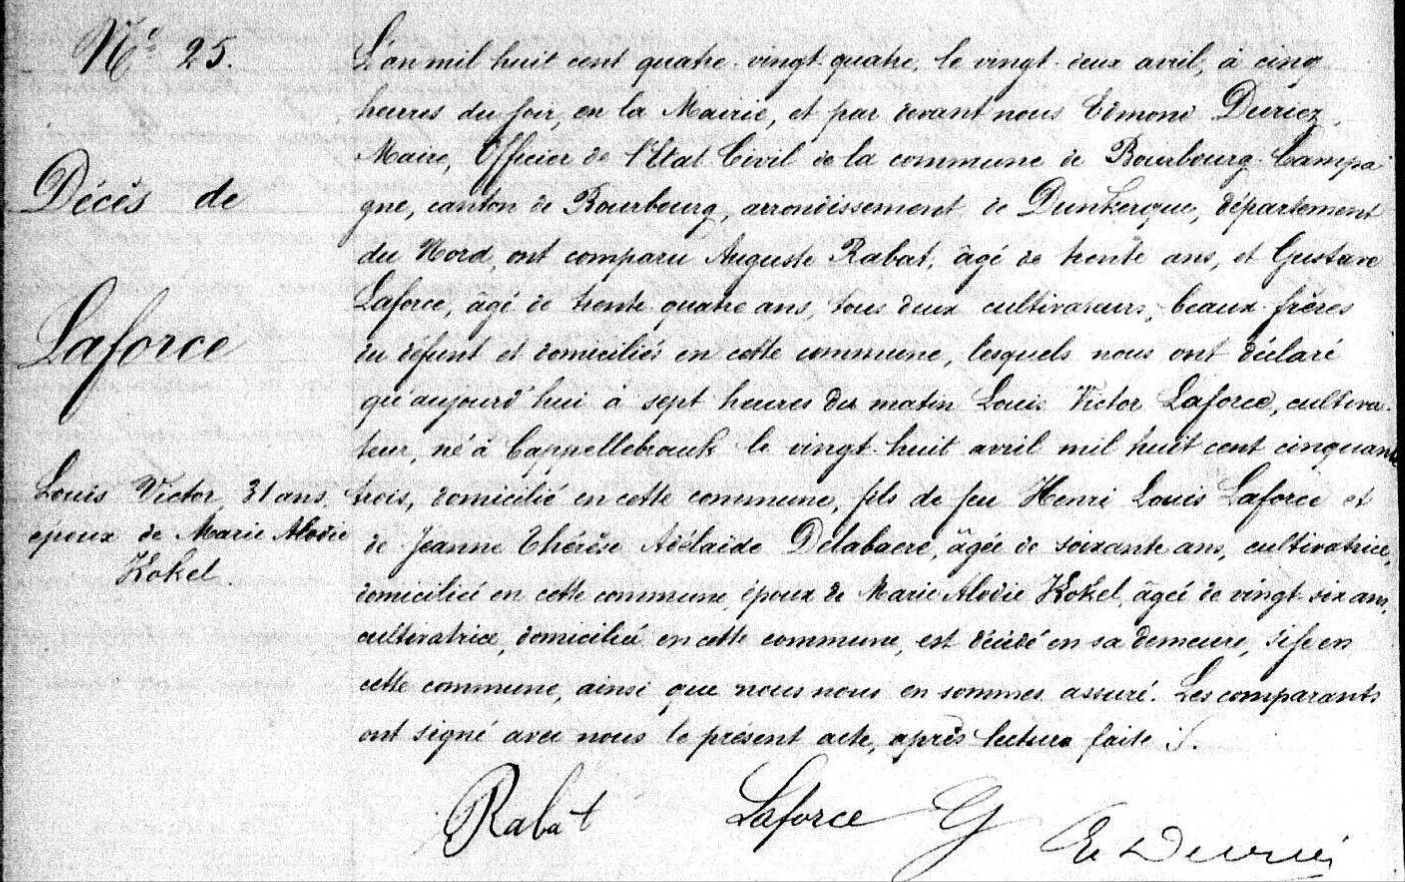 N° 25.
Décès de
Laforce
Louis Victor 31 ans,
époux de Marie Alodie
Kokel
L'an mil huit cent quatre-vingt-quatre, le vingt-deux avril, à cinq
heures du soir, en la Mairie, et par devant nous Edmond Duriez,
Maire, Officier de l'Etat Civil de la commune de Bourbourg-Campa-
gne, canton de Bourbourg, arrondissement de Dunkerque, département
du Nord, ont comparu Auguste Rabat, âgé de trente ans, et Gustave
Laforce, âgé de trente-quatre ans, tous deux cultivateurs, beaux-frères
du défunt et domiciliés en cette commune, lesquels nous ont déclaré
qu'aujourd'hui à sept heures du matin Louis Victor Laforce, cultiva-
teur, né à Cappellebrouck le vingt-huit avril mil huit cent cinquante
trois, domicilié en cette commune, fils de feu Henri Louis Laforce et
de Jeanne Thérèse Adélaïde Delabaere, âgée de soixante ans, cultivatrice,
domiciliée en cette commune, époux de Marie Alodie Kokel, âgée de vingt-six ans,
cultivatrice, domiciliée en cette commune, est décédé en sa demeure, sise en
cette commune, ainsi que nous nous en sommes assuré. Les comparants
ont signé avec nous le présent acte, après lecture faite.
Rabat Laforce G E Duriez